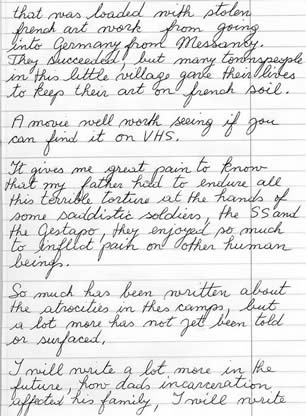 that was loaded with stolen
french art work from going
into Germany from Messanby.
They succeeded, but many townspeople
in this little village gave their lives
to keep their art on french soil.
A movie well worth seeing if you
can find it on VHS.
It gives me great pain to know
that my father had to endure all
this terrible torture at the hands of
some saiddistic soldiers, the SS and
the Gestapo, they enjoyed so much
to inflict pain on other human
beings.
So much has been written about
the atrocities in thes camps, but
a lot more has not yet been told
or surfaced.
I will write a lot more in the
future, how dads incarceration
affected his family, I will write